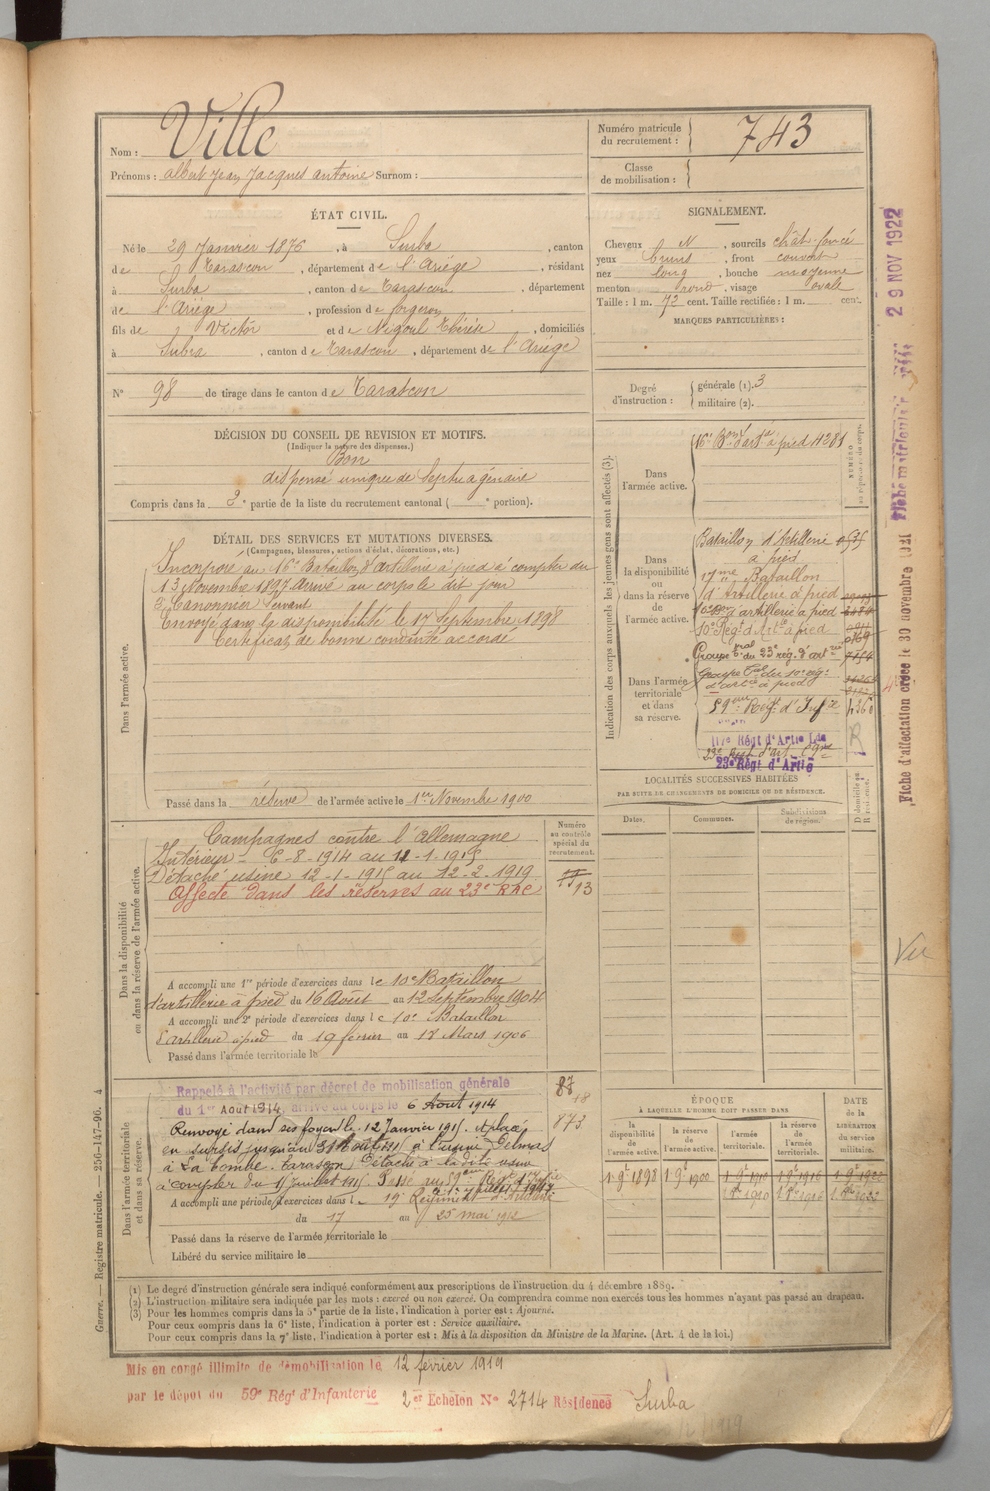 Nom : Ville
Prénoms : albert Jean Jacques antoine Surnom :
Numéro matricule du recrutement : 743
Classe de mobilisation :
ÉTAT CIVIL.
Né le 29 Janvier 1876, à Surba, canton
de Tarascon, département de l'Ariège, résidant
à Surba, canton de Tarascon, département
de l'Ariège, profession de forgeron
fils de Victor et de Négoul Thérèse, domiciliés
à Surba, canton de Tarascon, département de l'Ariège
N° 98 de tirage dans le canton de Tarascon
SIGNALEMENT.
Cheveux N, sourcils chât. foncé
yeux bruns, front couvert
nez long, bouche moyenne
menton rond, visage ovale
Taille : 1 m. 72 cent. Taille rectifiée : 1 m. cent.
MARQUES PARTICULIÈRES :
Degré d'instruction : générale (1). 3
militaire (2).
DÉCISION DU CONSEIL DE REVISION ET MOTIFS.
(Indiquer la nature des dispenses.)
Bon
dispensé unique de Septuagénaire
Compris dans la 2e partie de la liste du recrutement cantonal ( e portion).
DÉTAIL DES SERVICES ET MUTATIONS DIVERSES.
(Campagnes, blessures, actions d'éclat, décorations, etc.)
Dans l'armée active.
Incorporé au 16e Bataillon d'artillerie à pied à compter du
13 Novembre 1897 Arrivé au corps le dit jour
2e Canonnier Servant
Envoyé dans la disponibilité le 17 Septembre 1898
Certificat de bonne conduite accordé
Passé dans la réserve de l'armée active le 1er Novembre 1900
Dans la disponibilité ou dans la réserve de l'armée active.
Campagnes contre l'Allemagne
Intérieur - 6-8-1914 au 11-1-1915
Détaché usine 12-1-1915 au 12-2-1919
Affecté dans les réserves au 23e RAC
A accompli une 1re période d'exercices dans le 10e Bataillon
d'artillerie à pied du 16 Août au 12 Septembre 1904
A accompli une 2e période d'exercices dans le 10e Bataillon
d'artillerie à pied du 19 février au 18 Mars 1906
Passé dans l'armée territoriale le
Numéro au contrôle spécial du recrutement.
13
Dans l'armée territoriale et dans sa réserve.
Rappelé à l'activité par décret de mobilisation générale
du 1er Août 1914, arrivé au corps le 6 Août 1914
Renvoyé dans ses foyers le 12 Janvier 1915. Aplacé
en sursis jusqu'au 31 Août 1915 à l'usine Delmas
à La Combe. Tarascon Détaché à la dite usine
à compter du 1er Juillet 1915. Passé au 59e Regt d'Infie
A accompli une période d'exercices dans le 19e Régiment d'Artillerie
du 17 au 25 mai 1912
Passé dans la réserve de l'armée territoriale le
Libéré du service militaire le
873
Indication des corps auxquels les jeunes gens sont affectés (3).
NUMÉRO au répertoire du corps.
Dans l'armée active.
16e Bon d'artie à pied 4281
Dans la disponibilité ou dans la réserve de l'armée active.
Bataillon d'Artillerie
à pied
17me Bataillon
d'Artillerie à pied
10e d'artillerie à pied
10e Régt d'Artie à pied
Dans l'armée territoriale et dans sa réserve.
Groupe tal du 23e rég. d'artie
Groupe tal du 10e rég.
d'artie à pied
59eme Regt d'Infie
117e Régt d'Artie Lde
23e Régt d'Artie
LOCALITÉS SUCCESSIVES HABITÉES
PAR SUITE DE CHANGEMENTS DE DOMICILE OU DE RÉSIDENCE.
Dates.
Communes.
Subdivisions de région.
D domicile ou R résidence.
ÉPOQUE
À LAQUELLE L'HOMME DOIT PASSER DANS
DATE de la LIBÉRATION du service militaire.
la disponibilité de l'armée active.
la réserve de l'armée active.
l'armée territoriale.
la réserve de l'armée territoriale.
1 9e 1898
1 9e 1900
1 9e 1910
1 9e 1916
1 9e 1922
(1) Le degré d'instruction générale sera indiqué conformément aux prescriptions de l'instruction du 4 décembre 1889.
(2) L'instruction militaire sera indiquée par les mots : exercé ou non exercé. On comprendra comme non exercés tous les hommes n'ayant pas passé au drapeau.
(3) Pour les hommes compris dans la 5e partie de la liste, l'indication à porter est : Ajourné.
Pour ceux compris dans la 6e liste, l'indication à porter est : Service auxiliaire.
Pour ceux compris dans la 7e liste, l'indication à porter est : Mis à la disposition du Ministre de la Marine. (Art. 4 de la loi.)
Guerre. — Registre matricule. — 256-147-96. 4
Mis en congé illimité de démobilisation le 12 février 1919
par le dépôt du 59e Régt d'Infanterie 2er Echelon No 2714 Résidence Surba
29 NOV 1922
Fiche d'affectation créée le 30 novembre 1921
Vu